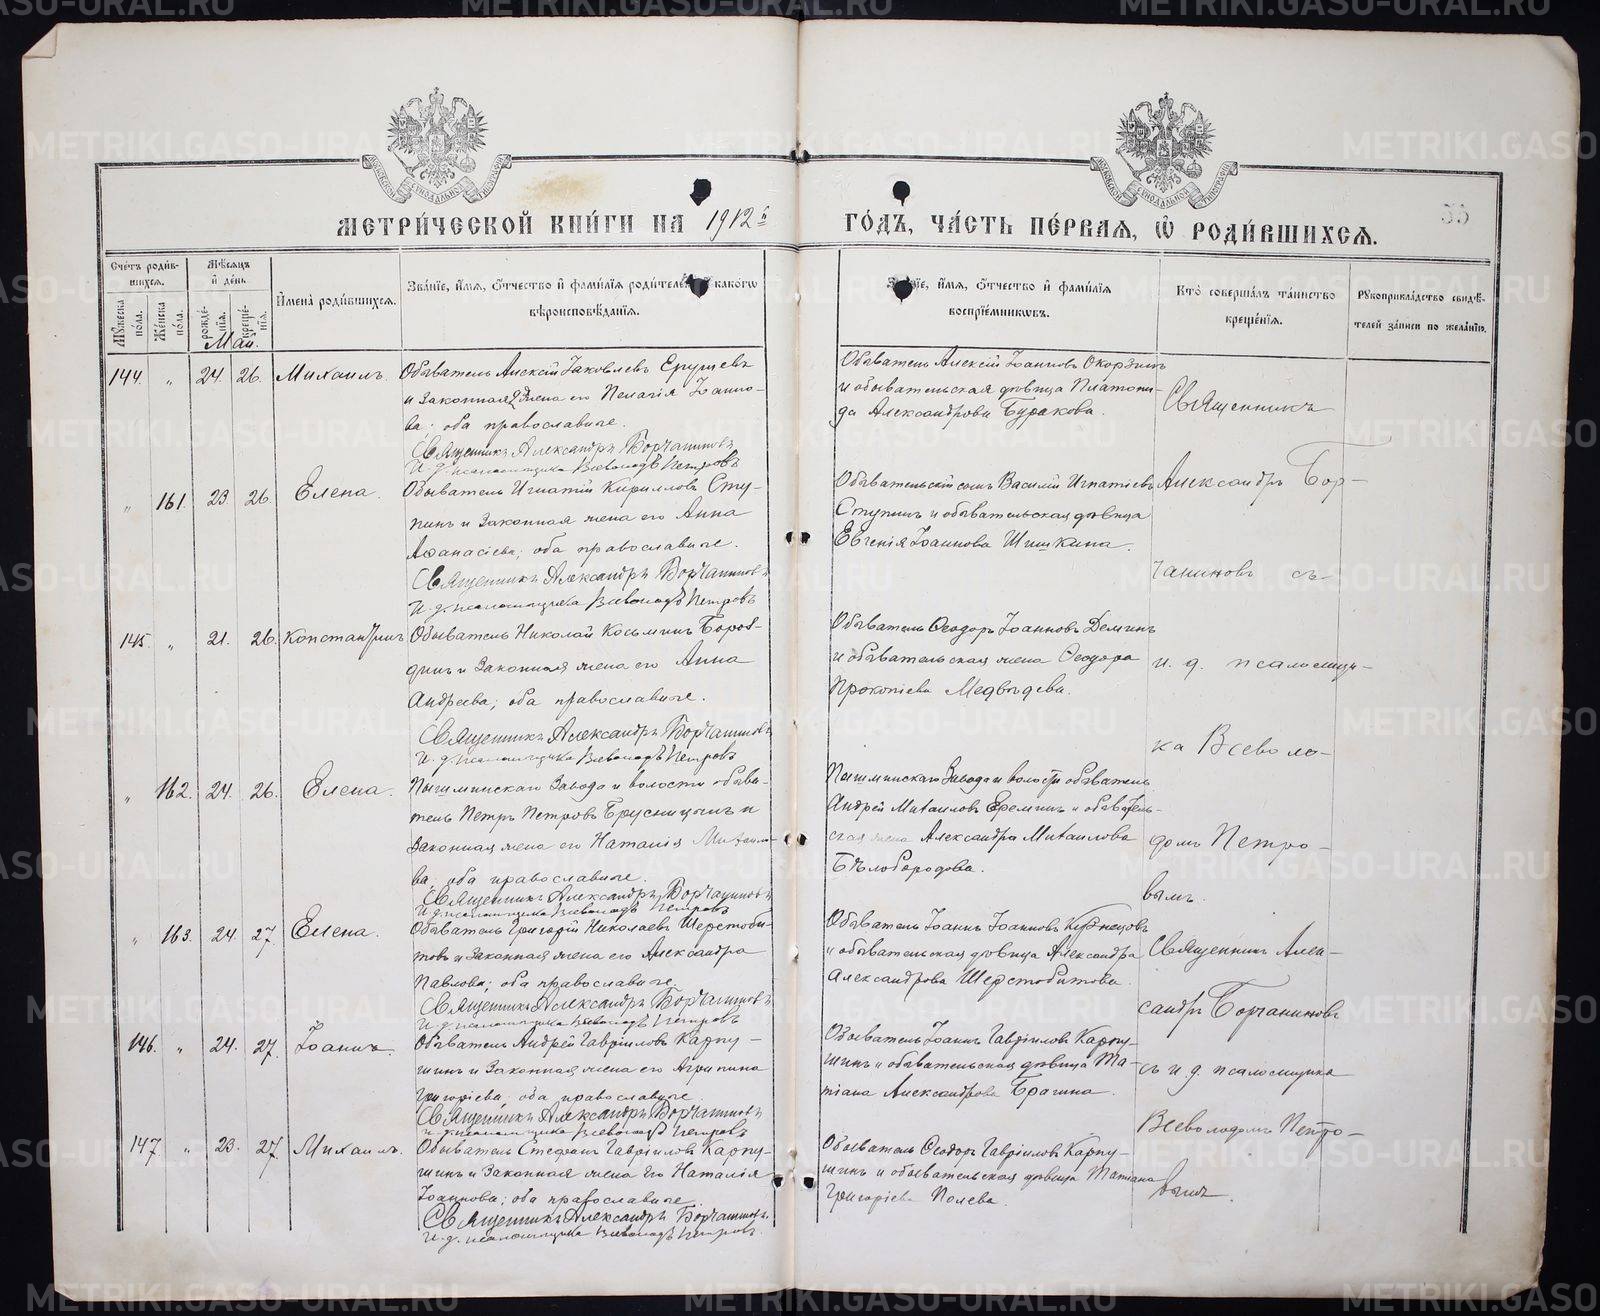 МЕТРИ́ЧЕСКОЙ КНИ́ГИ НА 1912й
ГО́ДЪ, ЧА́СТЬ ПЕ́РВАЯ, Ѿ РОДИ́ВШИХСЯ.
55
Сче́тъ роди́вшихся.
Мѣ́сяцъ и де́нь
Му́жеска по́ла.
Же́нска по́ла.
рожде́нїя.
креще́нїя.
И҆мена̀ роди́вшихся.
Зва́нїе, и҆́мя, ѻ҆́тчество и҆ фами́лїя роди́телей, какогѡ
вѣроисповѣ́данїя.
и҆́мя, ѻ҆́тчество и҆ фами́лїя
воспрїе́мникѡвъ.
Кто̀ соверша́лъ та́инство
креще́нїя.
Рꙋкоприкла́дство свидѣ́-
телей за́писи по жела́нїю.
Май.
144. " 24. 26. Михаилъ.
Обыватель Алексій Іаковлевъ Ерушевъ
и законная жена его Пелагія Іоанно-
ва; оба православные.
Священникъ Александръ Борчаниновъ
И. д. псаломщика Всеволодъ Петровъ
Обыватель Алексій Іоанновъ
и обывательская дѣвица Платони-
да Александрова Буракова.
" 161. 23. 26. Елена.
Обыватель Игнатій Кирилловъ Сту-
пинъ и законная жена его Анна
Аѳанасіева; оба православные.
Священникъ Александръ Борчаниновъ
И. д. псаломщика Всеволодъ Петровъ
Обывательскій сынъ Василій Игнатіевъ
Ступинъ и обывательская дѣвица
Евгенія Іоаннова Шишкина.
145. " 21. 26. Константинъ
Обыватель Николай Косьминъ Боров-
динъ и законная жена его Анна
Андреева; оба православные.
Священникъ Александръ Борчаниновъ
И. д. псаломщика Всеволодъ Петровъ
Обыватель Ѳеодоръ Іоанновъ Деминъ
и обывательская жена Ѳеодора
Прокопіева Медвѣдева.
" 162. 24. 26. Елена.
Пышминскаго Завода и волости обыва-
тель Петръ Петровъ Брусницынъ и
законная жена его Наталія Михаило-
ва; оба православные.
Священникъ Александръ Борчаниновъ
И. д. псаломщика Всеволодъ Петровъ
Пышминскаго Завода и волости обыватель
Андрей Михаиловъ Ереминъ и обыватель-
ская жена Александра Михаилова
Бѣлобородова.
" 163. 24. 27. Елена.
Обыватель Григорій Николаевъ Шерстоби-
товъ и законная жена его Александра
Павлова; оба православные.
Священникъ Александръ Борчаниновъ
И. д. псаломщика Всеволодъ Петровъ
Обыватель Іоаннъ Іоанновъ Кузнецовъ
и обывательская дѣвица Александра
Александрова Шерстобитова.
146. " 24. 27. Іоаннъ.
Обыватель Андрей Гавріиловъ Карпу-
шинъ и законная жена его Агрипина
Григоріева; оба православные.
Священникъ Александръ Борчаниновъ
И. д. псаломщика Всеволодъ Петровъ
Обыватель Іоаннъ Гавріиловъ Карпу-
шинъ и обывательская дѣвица Та-
тіана Александрова Брагина.
147 " 23. 27. Михаилъ.
Обыватель Стефанъ Гавріиловъ Карпу-
шинъ и законная жена его Наталія
Іоаннова; оба православные.
Священникъ Александръ Борчаниновъ.
И. д. псаломщика Всеволодъ Петровъ.
Обыватель Ѳеодоръ Гавріиловъ Карпу-
шинъ и обывательская дѣвица Татіана
Григоріева Полева.
Священникъ
Александръ Бор-
чаниновъ съ
и. д. псаломщи-
ка Всеволо-
домъ Петро-
вымъ.
Священникъ Алек-
сандръ Борчаниновъ
съ и. д. псаломщика
Всеволодомъ Петро-
вымъ.
METRIKI.GASO-URAL.RU